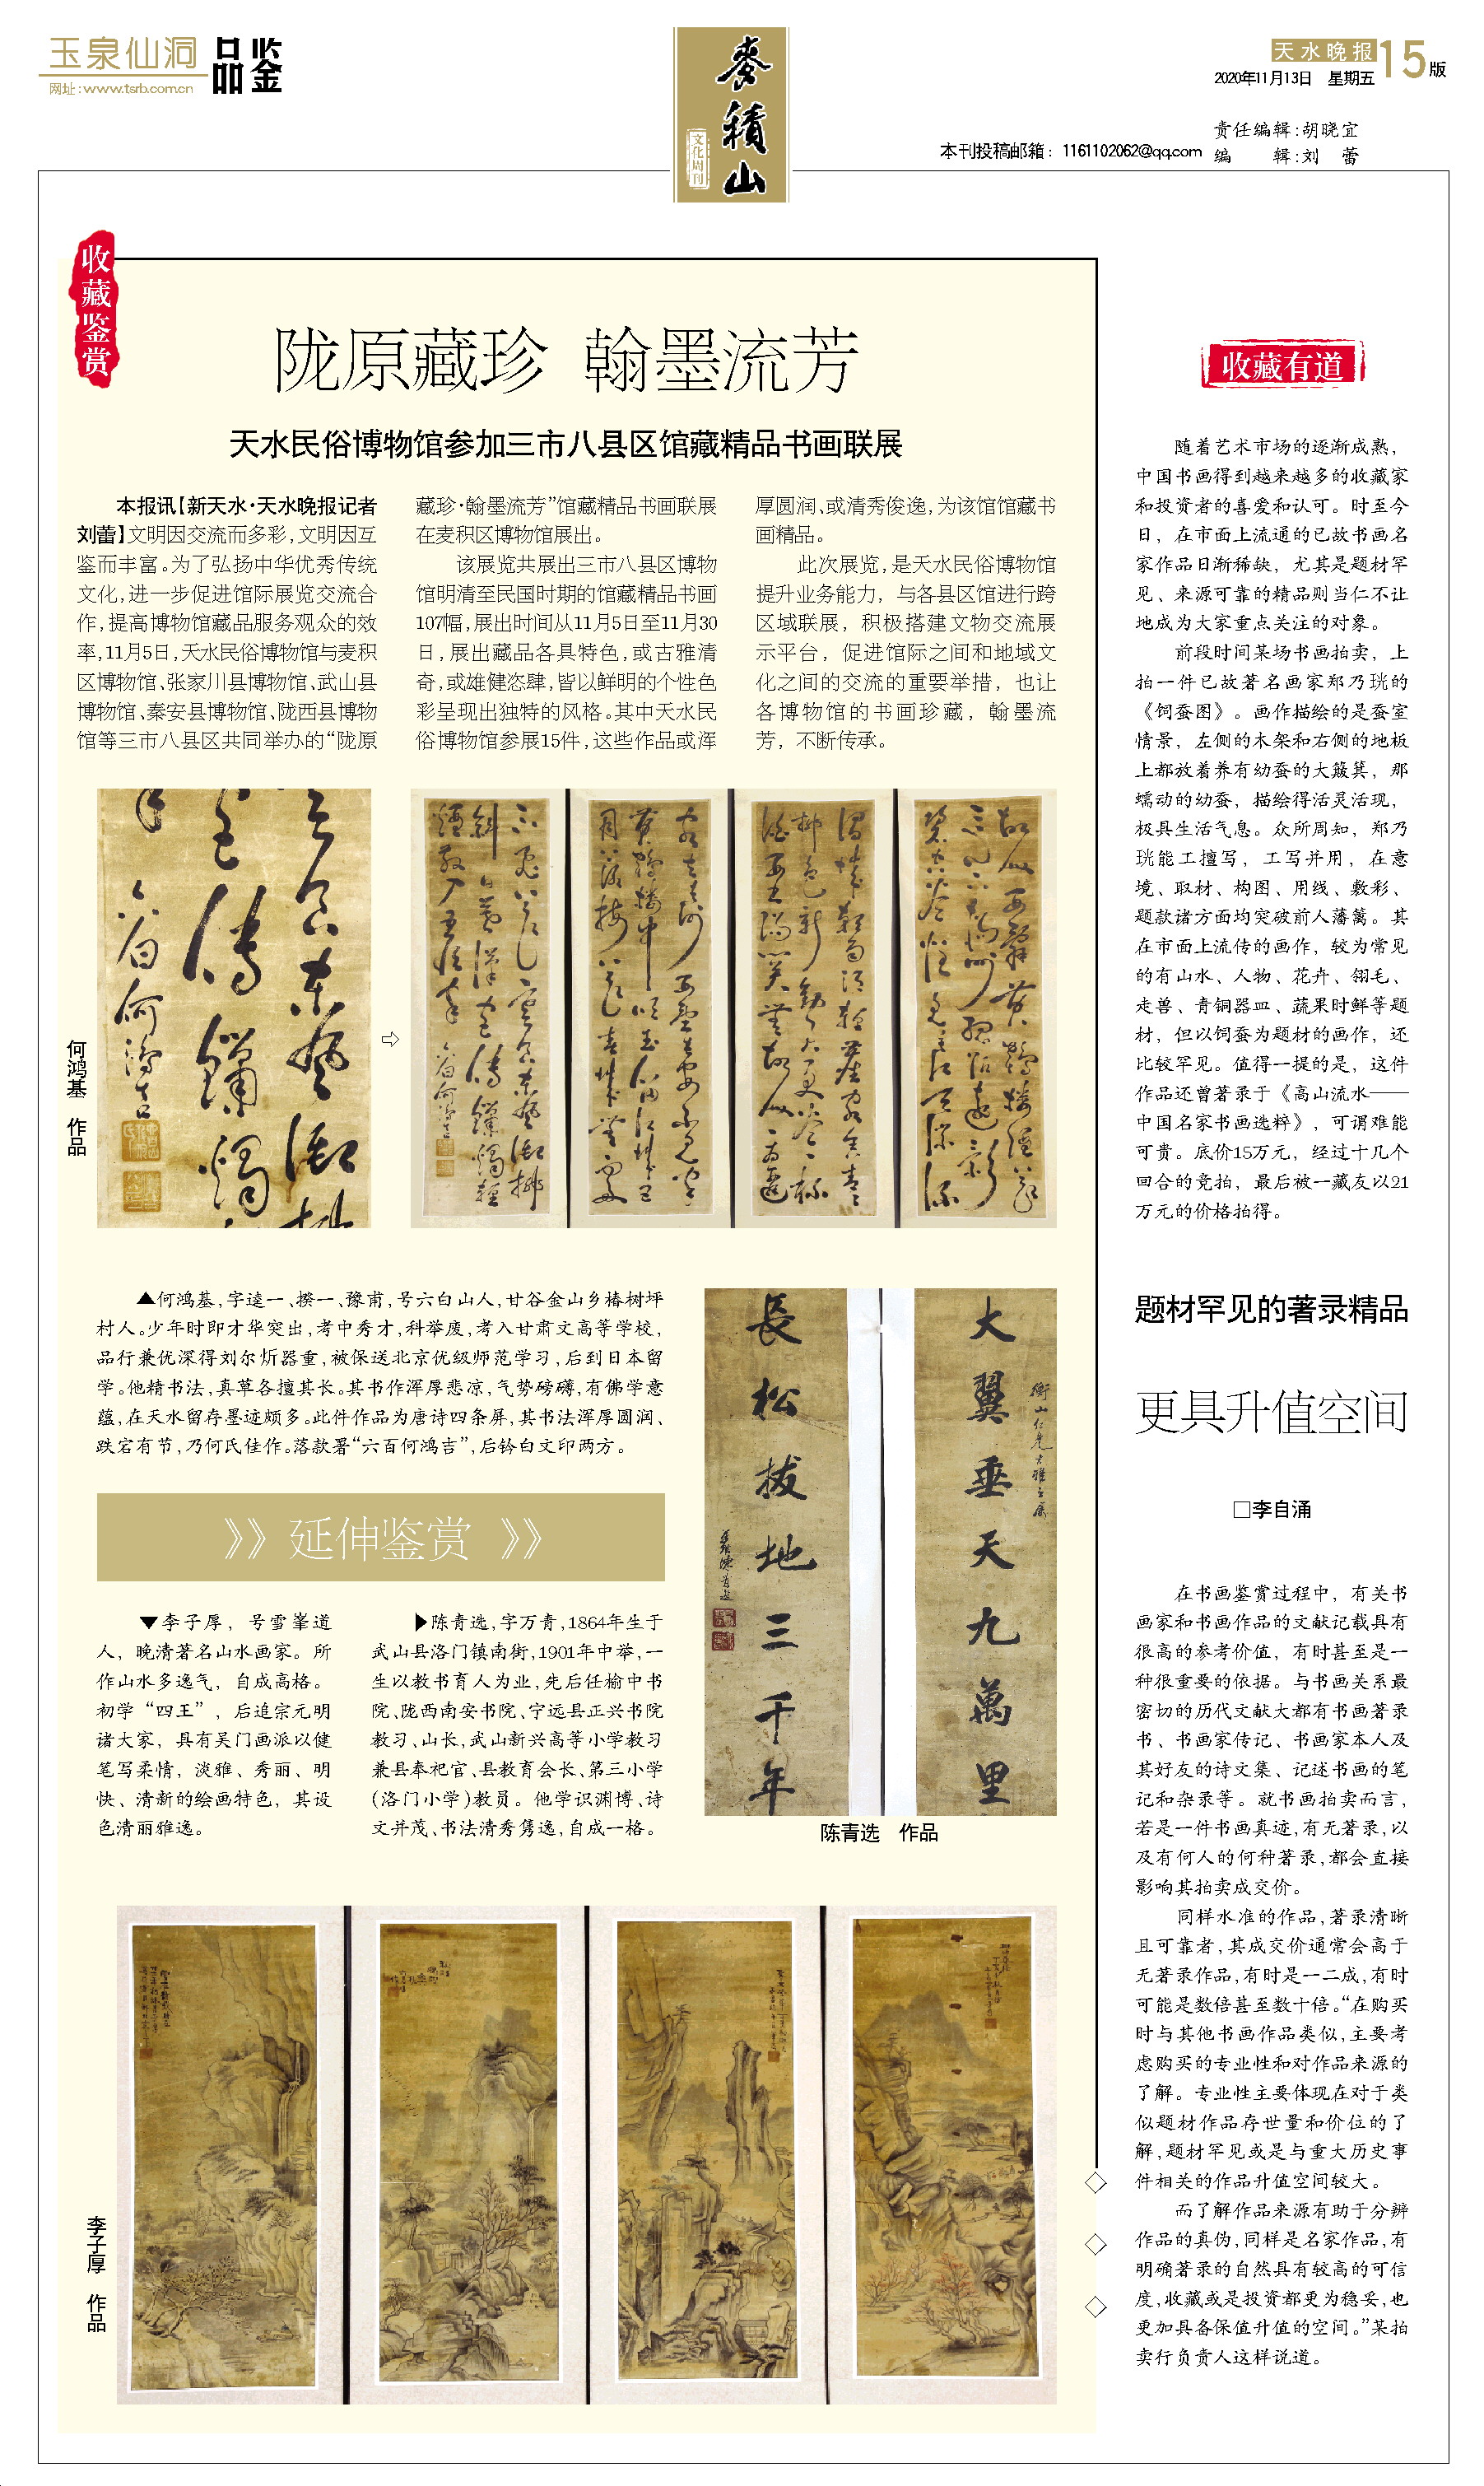 玉泉仙洞
品鉴
网址:www.tsrb.com.cn
麥積山
文化周刊
天水晚报
15版
2020年11月13日 星期五
责任编辑:胡晓宜
本刊投稿邮箱: 1161102062@qq.com
编 辑:刘 蕾
收藏鉴赏
陇原藏珍 翰墨流芳
天水民俗博物馆参加三市八县区馆藏精品书画联展
本报讯【新天水·天水晚报记者
刘蕾】文明因交流而多彩,文明因互
鉴而丰富。为了弘扬中华优秀传统
文化,进一步促进馆际展览交流合
作,提高博物馆藏品服务观众的效
率,11月5日,天水民俗博物馆与麦积
区博物馆、张家川县博物馆、武山县
博物馆、秦安县博物馆、陇西县博物
馆等三市八县区共同举办的“陇原
藏珍·翰墨流芳”馆藏精品书画联展
在麦积区博物馆展出。
该展览共展出三市八县区博物
馆明清至民国时期的馆藏精品书画
107幅,展出时间从11月5日至11月30
日,展出藏品各具特色,或古雅清
奇,或雄健恣肆,皆以鲜明的个性色
彩呈现出独特的风格。其中天水民
俗博物馆参展15件,这些作品或浑
厚圆润、或清秀俊逸,为该馆馆藏书
画精品。
此次展览,是天水民俗博物馆
提升业务能力，与各县区馆进行跨
区域联展，积极搭建文物交流展
示平台，促进馆际之间和地域文
化之间的交流的重要举措，也让
各博物馆的书画珍藏，翰墨流
芳，不断传承。
何鸿基 作品
▲何鸿基,字逵一、揆一、豫甫,号六白山人,甘谷金山乡椿树坪
村人。少年时即才华突出,考中秀才,科举废,考入甘肃文高等学校,
品行兼优深得刘尔炘器重,被保送北京优级师范学习,后到日本留
学。他精书法,真草各擅其长。其书作浑厚悲凉,气势磅礴,有佛学意
蕴,在天水留存墨迹颇多。此件作品为唐诗四条屏,其书法浑厚圆润、
跌宕有节,乃何氏佳作。落款署“六百何鸿吉”,后钤白文印两方。
》》延伸鉴赏 》》
▼李子厚，号雪峯道
人，晚清著名山水画家。所
作山水多逸气，自成高格。
初学“四王”，后追宗元明
诸大家，具有吴门画派以健
笔写柔情，淡雅、秀丽、明
快、清新的绘画特色，其设
色清丽雅逸。
▶陈青选,字万青,1864年生于
武山县洛门镇南街,1901年中举,一
生以教书育人为业,先后任榆中书
院、陇西南安书院、宁远县正兴书院
教习、山长,武山新兴高等小学教习
兼县奉祀官、县教育会长、第三小学
(洛门小学)教员。他学识渊博、诗
文并茂、书法清秀隽逸,自成一格。
大翼垂天九萬里
長松拔地三千年
陈青选 作品
李子厚 作品
收藏有道
随着艺术市场的逐渐成熟，
中国书画得到越来越多的收藏家
和投资者的喜爱和认可。时至今
日，在市面上流通的已故书画名
家作品日渐稀缺，尤其是题材罕
见、来源可靠的精品则当仁不让
地成为大家重点关注的对象。
前段时间某场书画拍卖，上
拍一件已故著名画家郑乃珖的
《饲蚕图》。画作描绘的是蚕室
情景，左侧的木架和右侧的地板
上都放着养有幼蚕的大簸箕，那
蠕动的幼蚕，描绘得活灵活现，
极具生活气息。众所周知，郑乃
珖能工擅写，工写并用，在意
境、取材、构图、用线、敷彩、
题款诸方面均突破前人藩篱。其
在市面上流传的画作，较为常见
的有山水、人物、花卉、翎毛、
走兽、青铜器皿、蔬果时鲜等题
材，但以饲蚕为题材的画作，还
比较罕见。值得一提的是，这件
作品还曾著录于《高山流水——
中国名家书画选粹》，可谓难能
可贵。底价15万元，经过十几个
回合的竞拍，最后被一藏友以21
万元的价格拍得。
题材罕见的著录精品
更具升值空间
□李自涌
在书画鉴赏过程中，有关书
画家和书画作品的文献记载具有
很高的参考价值，有时甚至是一
种很重要的依据。与书画关系最
密切的历代文献大都有书画著录
书、书画家传记、书画家本人及
其好友的诗文集、记述书画的笔
记和杂录等。就书画拍卖而言，
若是一件书画真迹,有无著录,以
及有何人的何种著录,都会直接
影响其拍卖成交价。
同样水准的作品,著录清晰
且可靠者,其成交价通常会高于
无著录作品,有时是一二成,有时
可能是数倍甚至数十倍。“在购买
时与其他书画作品类似,主要考
虑购买的专业性和对作品来源的
了解。专业性主要体现在对于类
似题材作品存世量和价位的了
解,题材罕见或是与重大历史事
件相关的作品升值空间较大。
而了解作品来源有助于分辨
作品的真伪,同样是名家作品,有
明确著录的自然具有较高的可信
度,收藏或是投资都更为稳妥,也
更加具备保值升值的空间。”某拍
卖行负责人这样说道。